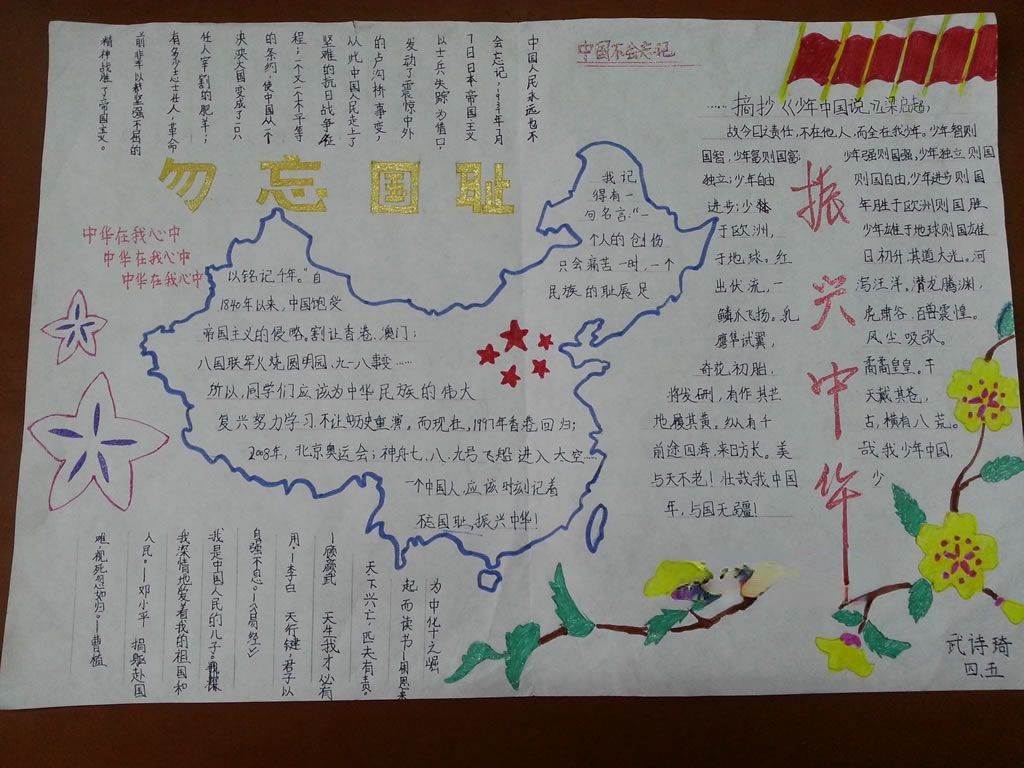 中国不会忘记
中国人民永远也不
会忘记:1937年7月
7日日本帝国主义
以士兵失踪为借口,
发动了震惊中外
的卢沟桥事变,
从此中国人民走上了
艰难的抗日战争征
程;一个又一个不平等
的条约,使中国从一个
泱泱大国变成了一只
任人宰割的肥羊;
有多少志士仁人,革命
前辈以
精神战胜了帝国主义。
勿忘国耻
中华在我心中
中华在我心中
中华在我心中
我记
得有一
句名言:“一
个人的创伤
只会痛苦一时,一个
民族的耻辱足
以铭记千年。”自
1840年以来,中国饱受
帝国主义的侵略。割让香港、澳门;
八国联军火烧圆明园、九一八事变……
所以,同学们应该为中华民族的伟大
复兴努力学习,不让历史重演。而现在,1997年香港回归;
2008年,北京奥运会;神舟七、八、九号飞船进入太空……
一个中国人,应该时刻记着
国耻,振兴中华!
……摘抄《少年中国说》梁启超
故今日之责任,不在他人,而全在我少年。少年智则
国智,少年富则国富;少年强则国强,少年独立则国
独立;少年自由则国自由,少年进步则国
进步;少年胜于欧洲则国胜
于欧洲,少年雄于地球则国雄
于地球。红日初升,其道大光。河
出伏流,一泻汪洋。潜龙腾渊,
鳞爪飞扬。乳虎啸谷,百兽震惶。
鹰隼试翼,风尘吸张。
奇花初胎,矞矞皇皇。干
将发硎,有作其芒。天戴其苍,
地履其黄。纵有千古,横有八荒。
前途四海,来日方长。美哉我少年中国,
与天不老!壮哉我中国少
年,与国无疆!
振兴中华
为中华之崛
起而读书—周恩来
天下兴亡,匹夫有责。
—顾炎武 天生我才必有
用。—李白 天行键,君子以
自强不息。—《易经》
我是中国人民的儿子。
我深情地爱着我的祖国和
人民。—邓小平 捐躯赴国
难,视死忽如归。—曹植
武诗琦
四、五